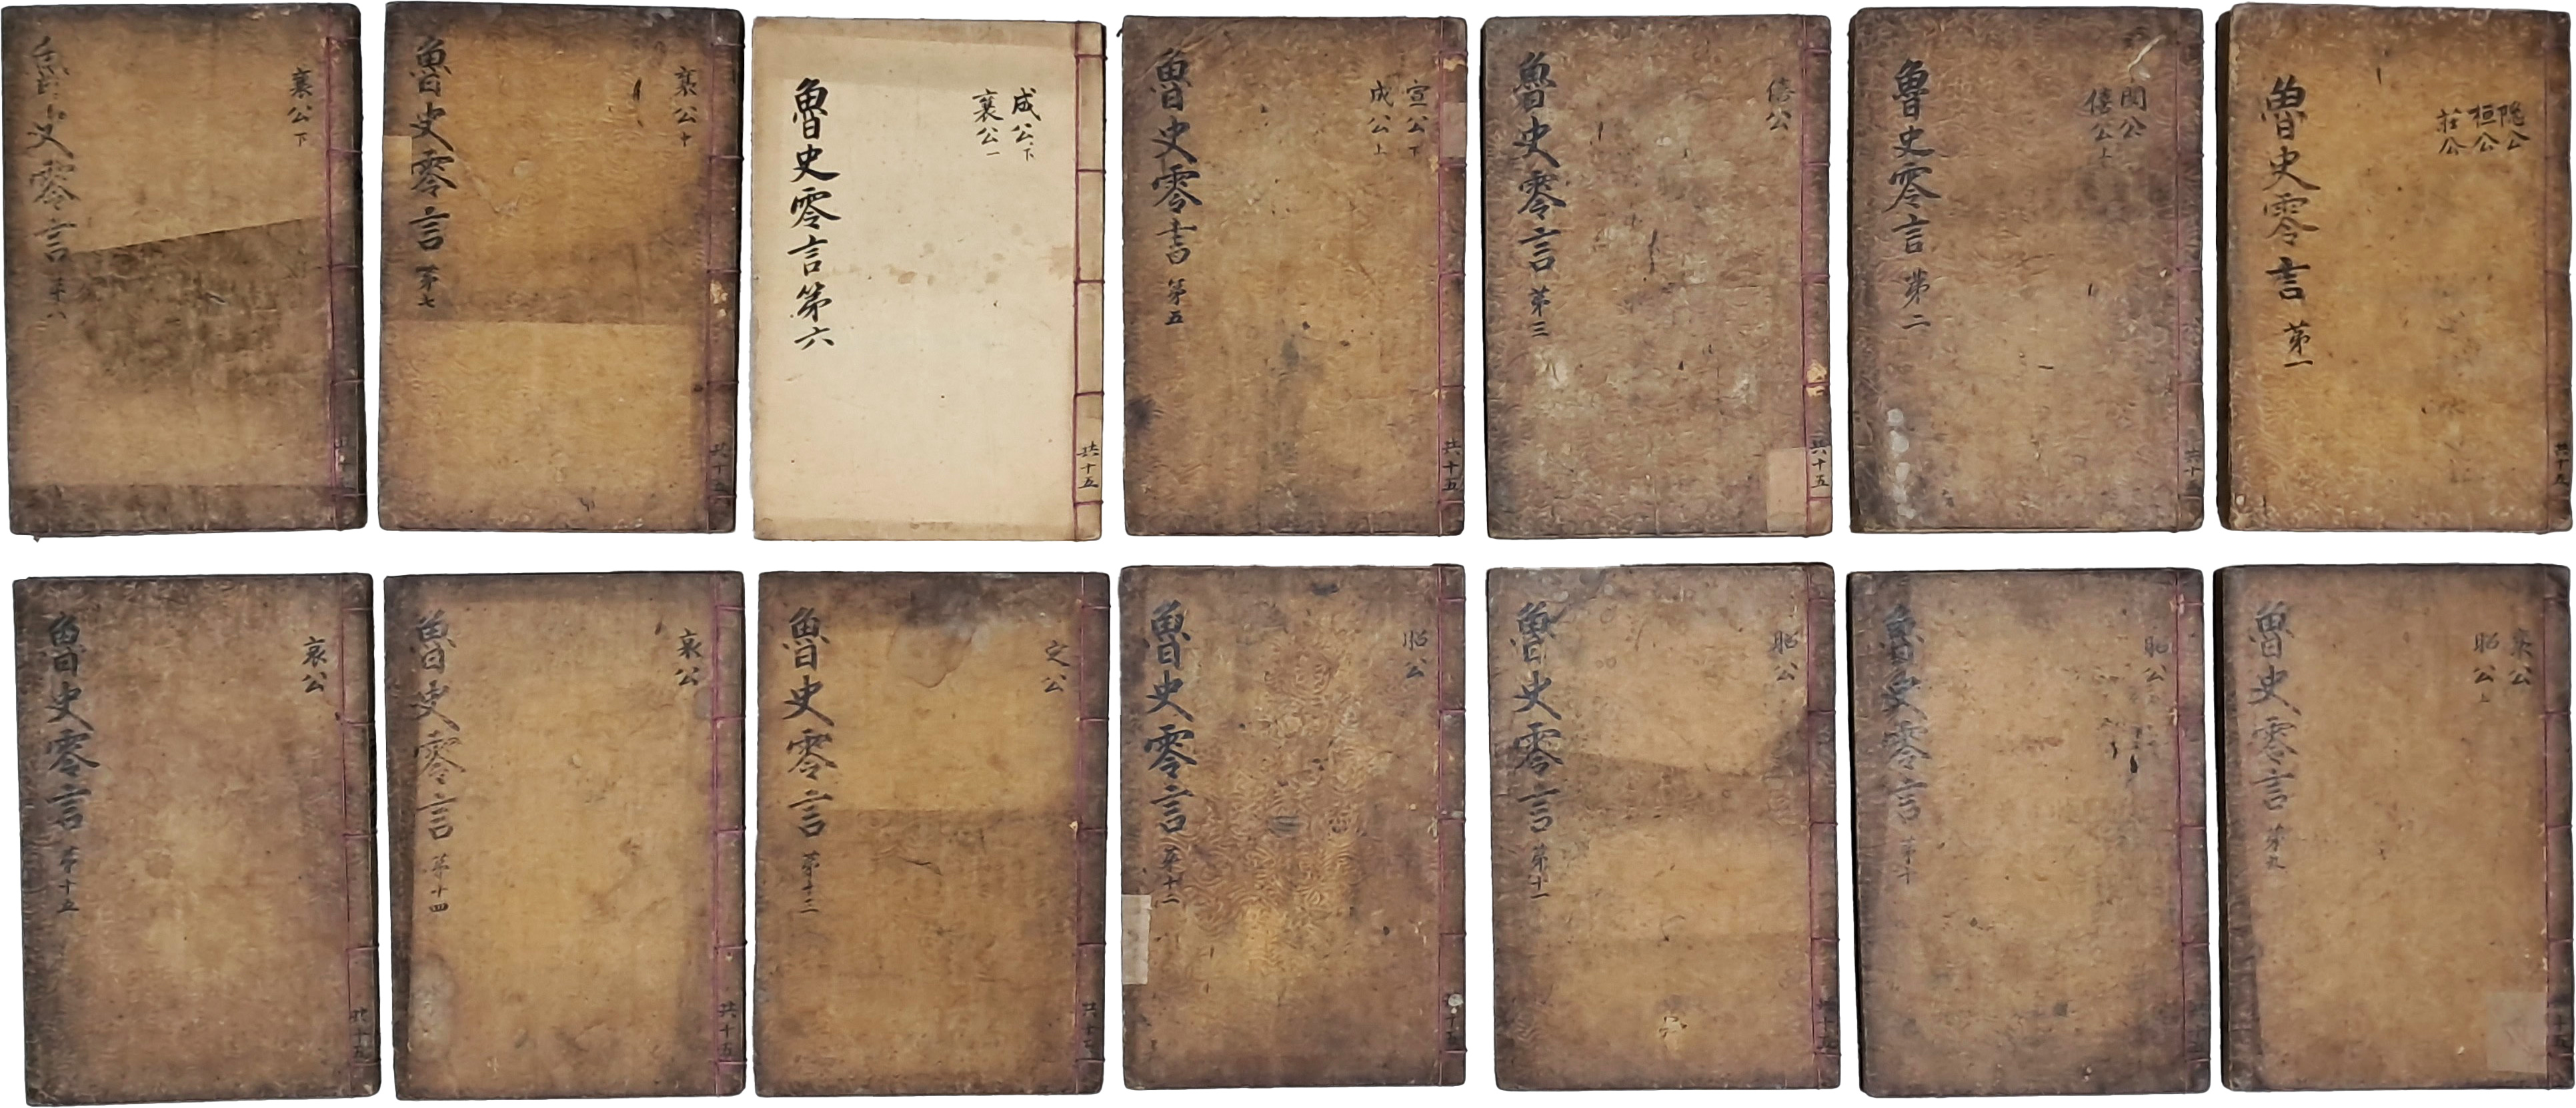 隐公
桓公
莊公
魯史零言 第一
共十五
閔公
僖公上
魯史零言 第二
共十
僖公
魯史零言 第三
共十五
宣公下
成公上
魯史零書 第五
共十五
成公下
襄公一
魯史零言第六
共十五
襄公中
魯史零言 第七
共十五
襄公下
魯史零言 第八
襄公
昭公上
魯史零言 第九
昭公
魯史零言 第十
昭公
魯史零言 第十一
昭公
魯史零言 第十二
定公
魯史零言 第十三
共十五
哀公
魯史零言 第十四
共十五
哀公
魯史零言 第十五
共十五